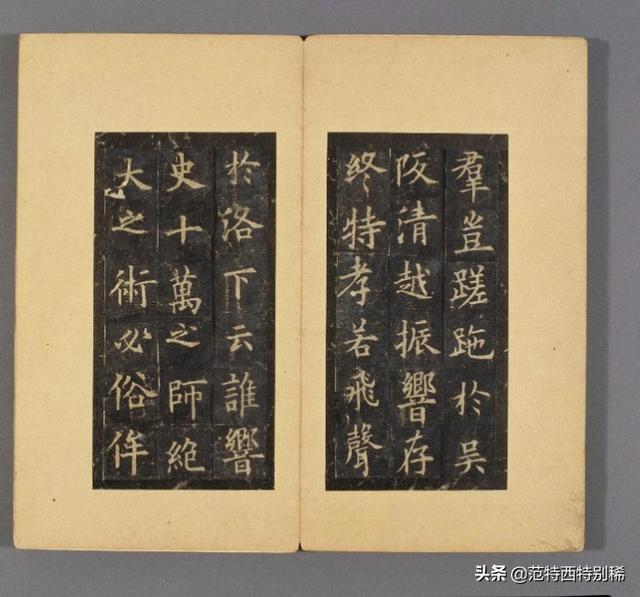 羣豈蹉跎於吴
阪清越振響存
終特孝若飛聲
於洛下云誰響
史十萬之師絶
大之術必俗侔
头条 @范特西特别稀